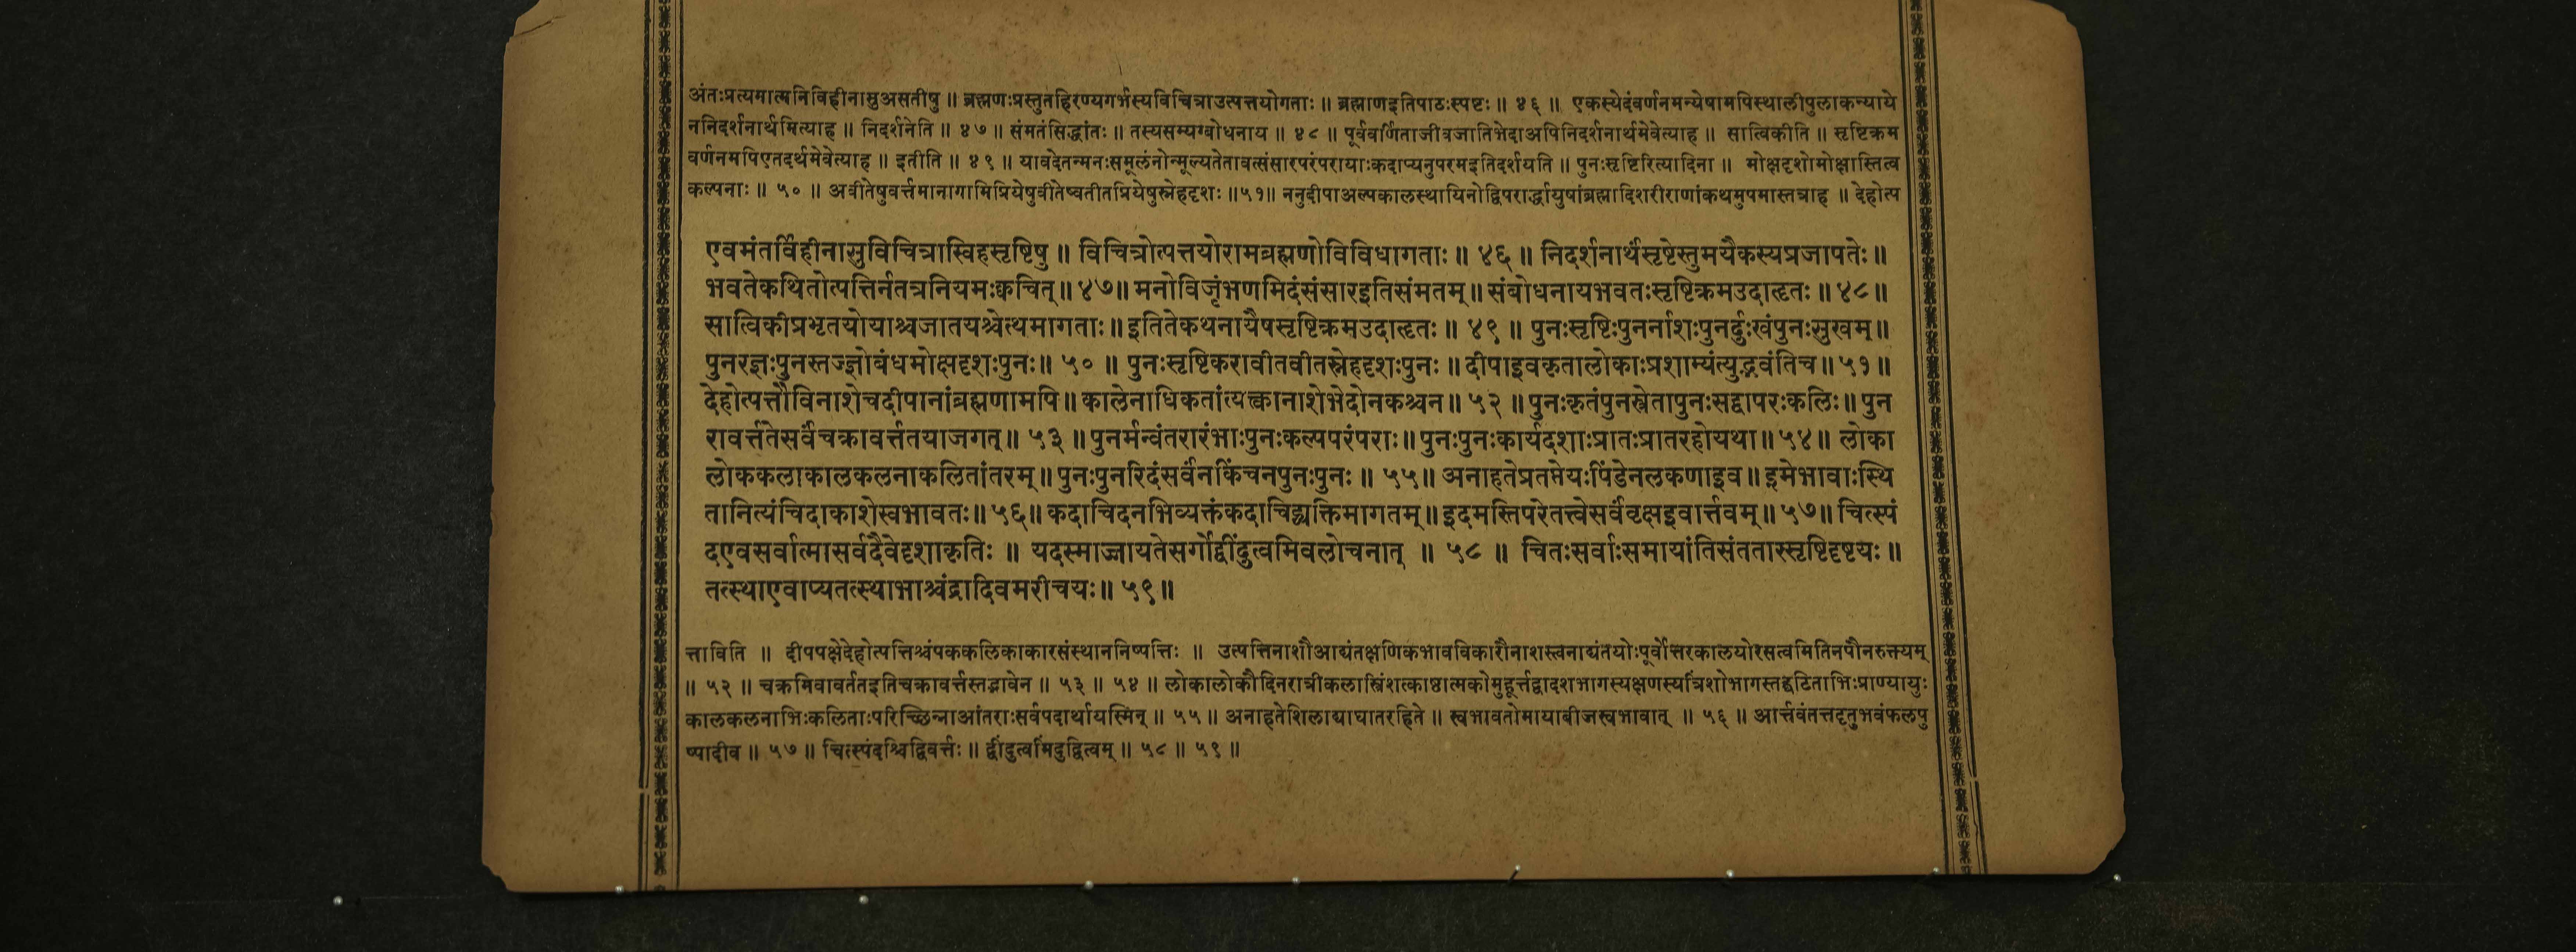 अंतःप्रत्यगात्मनिविहीनासुअसतीषु ॥ ब्रह्मणःप्रस्तुतहिरण्यगर्भस्यविचित्राउत्पत्तयोगताः ॥ ब्रह्माणइतिपाठःस्पष्टः ॥ ४६ ॥ एकस्येदंवर्णनमन्येषामपिस्थालीपुलाकन्याये
ननिदर्शनार्थमित्याह ॥ निदर्शनेति ॥ ४७ ॥ संमतंसिद्धांतः ॥ तस्यसम्यग्बोधनाय ॥ ४८ ॥ पूर्ववर्णिताजीवजातिभेदाअपिनिदर्शनार्थमेवेत्याह ॥ सात्विकीति ॥ सृष्टिक्रम
वर्णनमपिएतदर्थमेवेत्याह ॥ इतीति ॥ ४९ ॥ यावदेतन्मनःसमूलंनोन्मूल्यतेतावत्संसारपरंपरायाःकदाप्यनुपरमइतिदर्शयति ॥ पुनःसृष्टिरित्यादिना ॥ मोक्षदृशोमोक्षास्तित्व
कल्पनाः ॥ ५० ॥ अवीतेषुवर्त्तमानागामिप्रियेषुवीतेष्वतीतप्रियेषुस्नेहदृशः ॥५१॥ ननुदीपाअल्पकालस्थायिनोद्विपरार्द्धायुषांब्रह्मादिशरीराणांकथमुपमास्तत्राह ॥ देहोत्प
एवमंतर्विहीनासुविचित्रास्विहसृष्टिषु ॥ विचित्रोत्पत्तयोरामब्रह्मणोविविधागताः ॥ ४६ ॥ निदर्शनार्थंसृष्टेस्तुमयैकस्यप्रजापतेः ॥
भवतेकथितोत्पत्तिर्नतत्रनियमःक्वचित् ॥ ४७ ॥ मनोविजृंभणमिदंसंसारइतिसंमतम् ॥ संबोधनायभवतःसृष्टिक्रमउदाहृतः ॥ ४८ ॥
सात्विकीप्रभृतयोयाश्चजातयश्चेत्थमागताः ॥ इतितेकथनायैषसृष्टिक्रमउदाहृतः ॥ ४९ ॥ पुनःसृष्टिःपुनर्नाशःपुनर्दुःखंपुनःसुखम् ॥
पुनरज्ञःपुनस्तज्ज्ञोबंधमोक्षदृशःपुनः ॥ ५० ॥ पुनःसृष्टिकरावीतवीतस्नेहदृशःपुनः ॥ दीपाइवकृतालोकाःप्रशाम्यंत्युद्भवंतिच ॥ ५१ ॥
देहोत्पत्तौविनाशेचदीपानांब्रह्मणामपि ॥ कालेनाधिकतांत्यक्त्वानाशेभेदोनकश्चन ॥ ५२ ॥ पुनःकृतंपुनस्त्रेतापुनःसद्वापरःकलिः ॥ पुन
रावर्त्ततेसर्वंचक्रावर्त्ततयाजगत् ॥ ५३ ॥ पुनर्मन्वंतरारंभाःपुनःकल्पपरंपराः ॥ पुनःपुनःकार्यदशाःप्रातःप्रातरहोयथा ॥ ५४ ॥ लोका
लोककलाकालकलनाकलितांतरम् ॥ पुनःपुनरिदंसर्वंनकिंचनपुनःपुनः ॥ ५५ ॥ अनाहतेप्रतप्तेयःपिंडेनलकणाइव ॥ इमेभावाःस्थि
तानित्यंचिदाकाशेस्वभावतः ॥ ५६ ॥ कदाचिदनभिव्यक्तंकदाचिद्व्यक्तिमागतम् ॥ इदमस्तिपरेतत्त्वेसर्वंवृक्षइवार्त्तवम् ॥ ५७ ॥ चित्स्पं
दएवसर्वात्मासर्वदैवेदृशाकृतिः ॥ यदस्माज्जायतेसर्गोद्वींदुत्वमिवलोचनात् ॥ ५८ ॥ चितःसर्वाःसमायांतिसंततास्सृष्टिदृष्टयः ॥
तत्स्थाएवाप्यतत्स्थाभाश्चंद्रादिवमरीचयः ॥ ५९ ॥
त्ताविति ॥ दीपपक्षेदेहोत्पत्तिश्चंपककलिकाकारसंस्थाननिष्पत्तिः ॥ उत्पत्तिनाशौआद्यंतक्षणिकभावविकारौनाशस्त्वनाद्यंतयोःपूर्वोत्तरकालयोरसत्वमितिनपौनरुक्त्यम्
॥ ५२ ॥ चक्रमिवावर्ततइतिचक्रावर्त्तस्तद्भावेन ॥ ५३ ॥ ५४ ॥ लोकालोकौदिनरात्रीकलास्त्रिंशत्काष्ठात्मकोमुहूर्त्तद्वादशभागस्यक्षणस्यत्रिंशोभागस्तद्घटिताभिःप्राण्यायुः
कालकलनाभिःकलिताःपरिच्छिन्नाआंतराःसर्वपदार्थायस्मिन् ॥ ५५ ॥ अनाहतेशिलाद्याघातरहिते ॥ स्वभावतोमायाबीजस्वभावात् ॥ ५६ ॥ आर्त्तवंतत्तदृतुभवंफलपु
ष्पादीव ॥ ५७ ॥ चित्स्पंदश्चिद्विवर्त्तः ॥ द्वींदुत्वमिंदुद्वित्वम् ॥ ५८ ॥ ५९ ॥